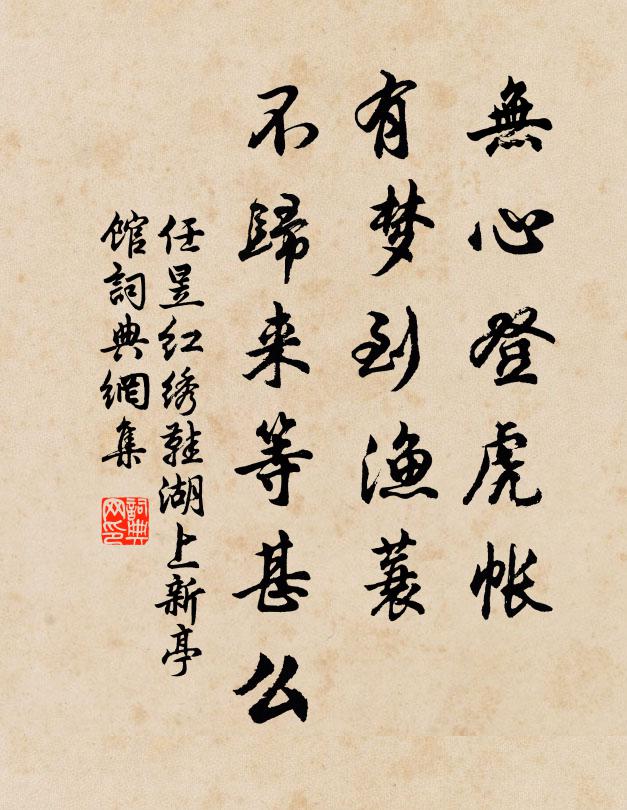 無心登虎帐
有梦到渔蓑
不歸来等甚么
任昱红绣鞋湖上新亭
馆詞典網集
詞典
网印